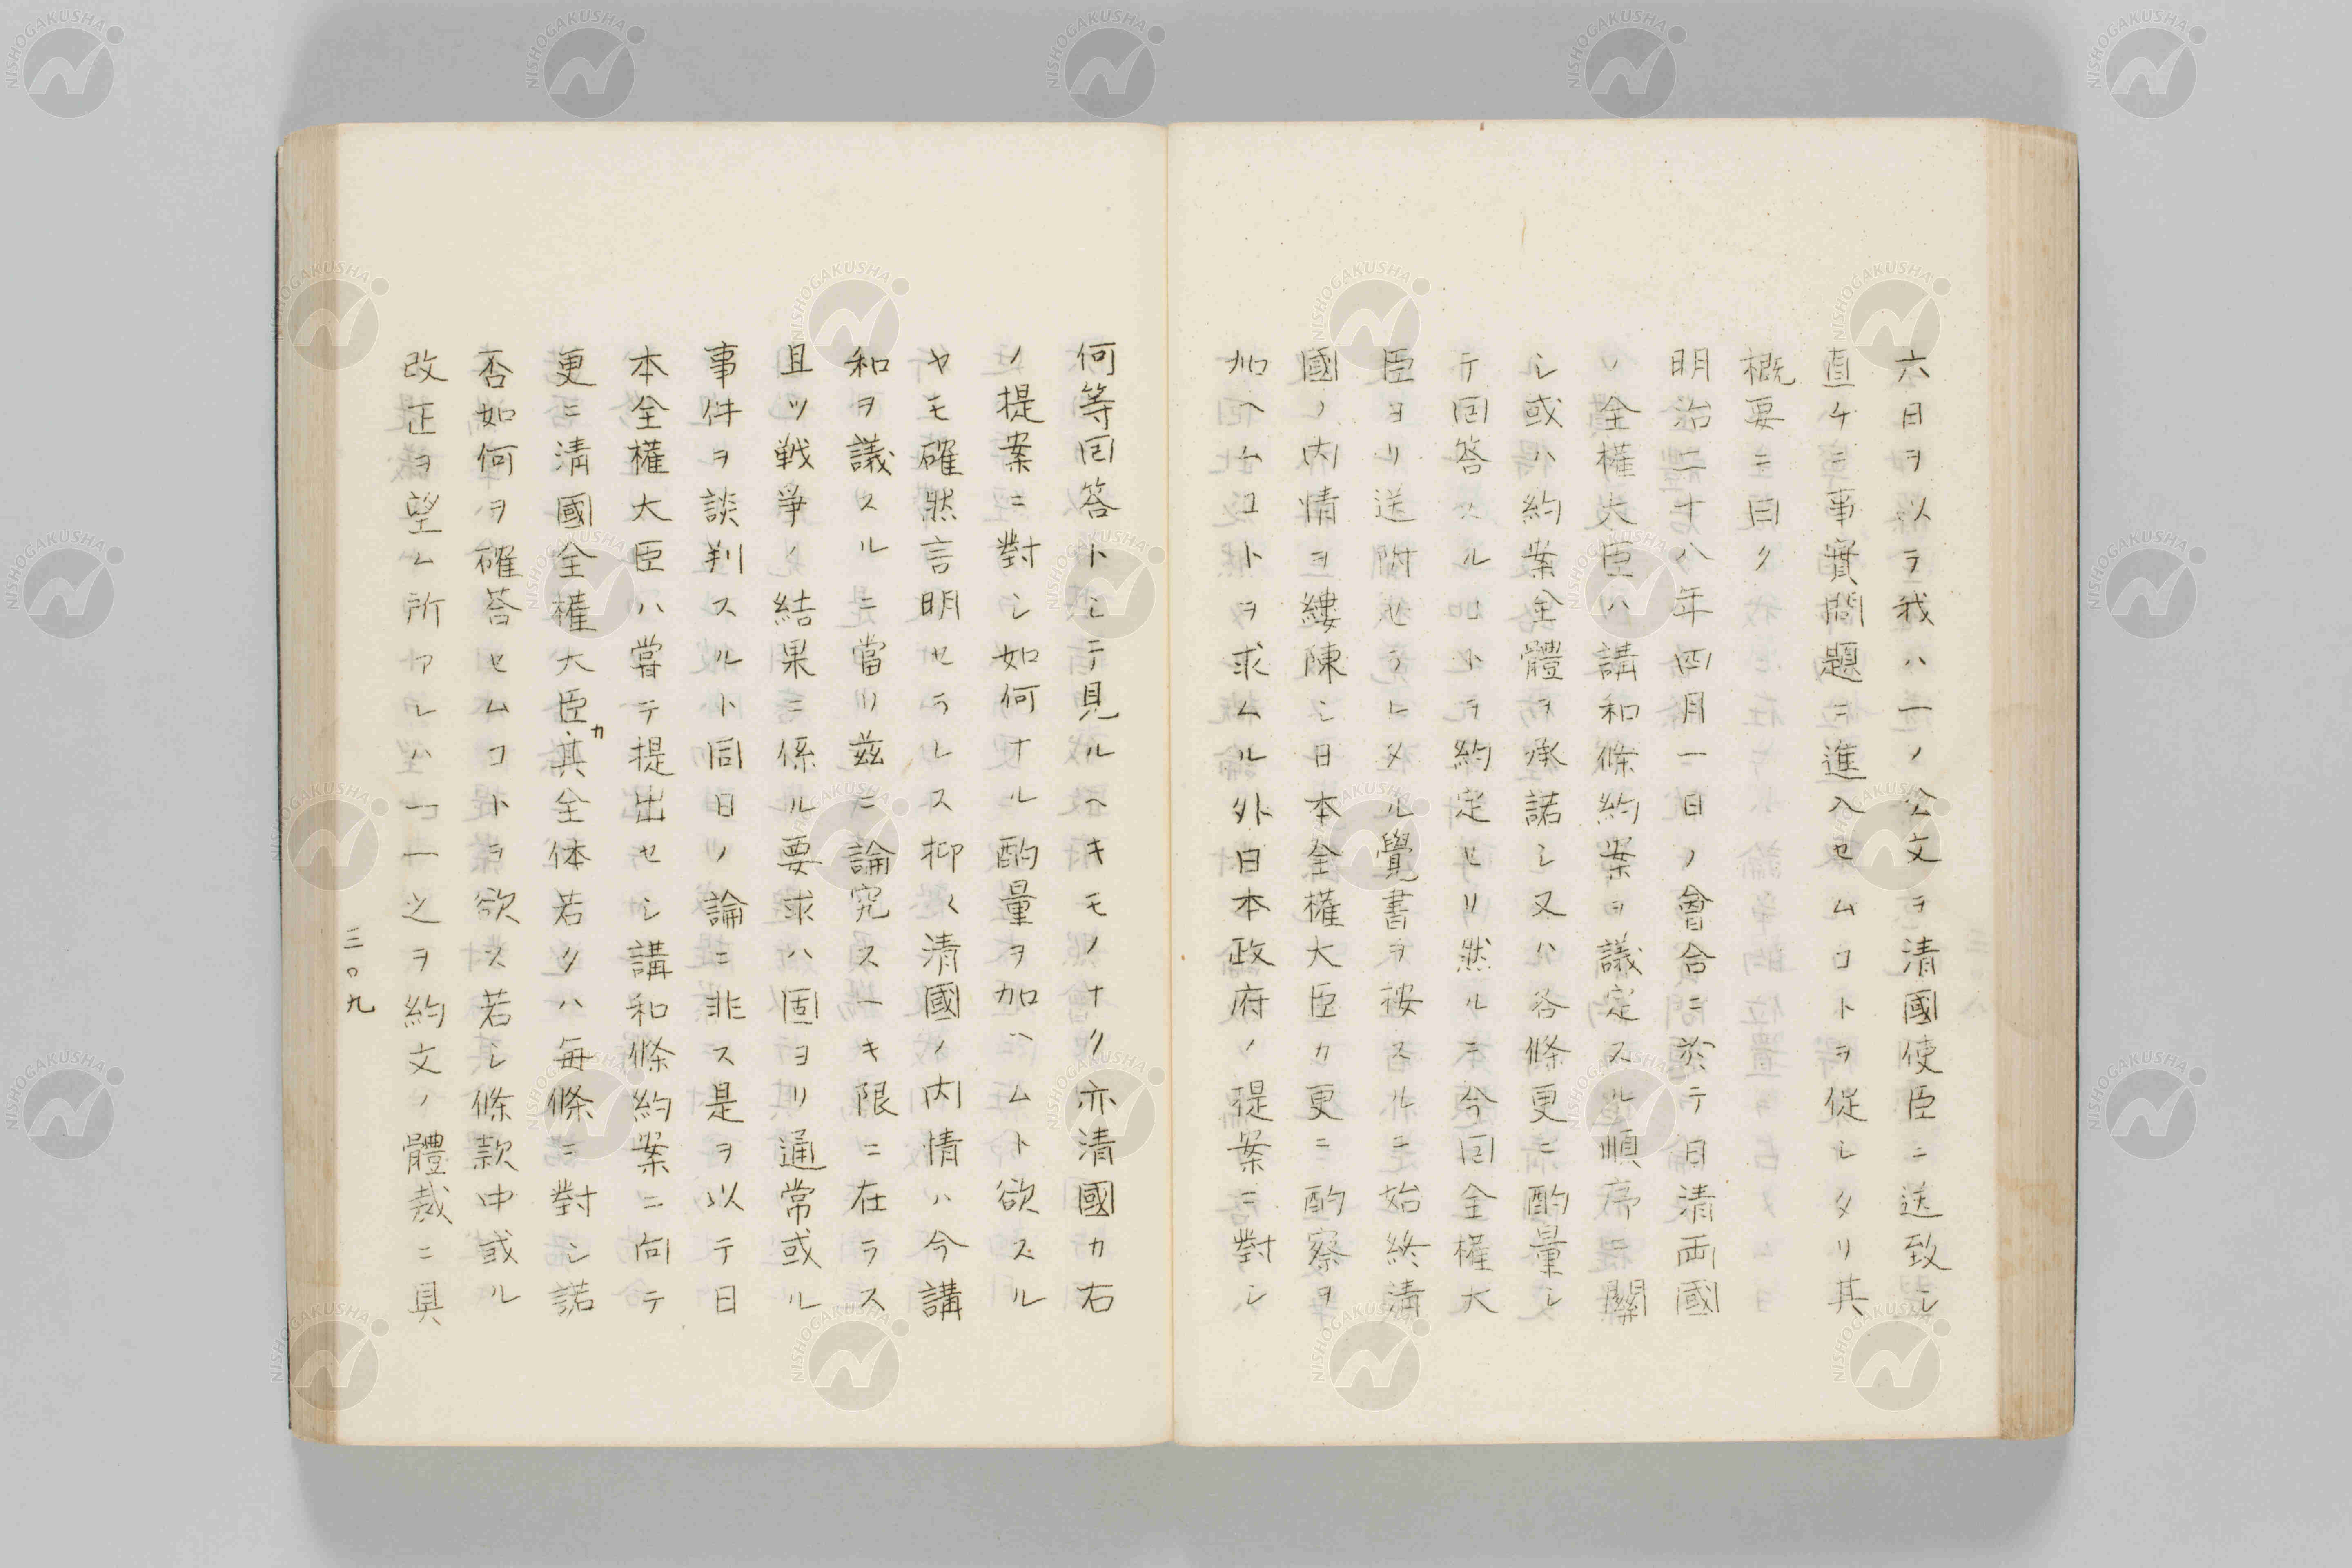 六日ヲ以テ我ハ一ノ公文ヲ清國使臣ニ送致シ
直チニ事實問題ニ進入セムコトヲ促シタリ其
概要ニ曰ク
明治二十八年四月一日ノ會合ニ於テ日清両國
ノ全權大臣ハ講和條約案ヲ議定スル順序ニ關
シ或ハ約案全體ヲ承諾シ又ハ各條更ニ酌量シ
テ回答スルコトヲ約定セリ然ルニ今回全權大
臣ヨリ送附セラレタル覺書ヲ按スルニ始終清
國ノ内情ヲ縷陳シ日本全權大臣カ更ニ酌察ヲ
加ヘムコトヲ求ムル外日本政府ノ提案ニ對シ
何等回答トシテ見ルヘキモノナク亦清國カ右
ノ提案ニ對シ如何ナル酌量ヲ加ヘムト欲スル
ヤモ確然言明セラレス抑〱清國ノ内情ハ今講
和ヲ議スルニ當リ茲ニ論究スヘキ限ニ在ラス
且ツ戦爭ノ結果ニ係ル要求ハ固ヨリ通常或ル
事件ヲ談判スルト同日ノ論ニ非ス是ヲ以テ日
本全權大臣ハ嘗テ提出セシ講和條約案ニ向テ
更ニ清國全權大臣カ其全体若クハ毎條ニ對シ諾
否如何ヲ確答セムコトヲ欲ス若シ條款中或ル
改正ヲ望ム所アレハ一一之ヲ約文ノ體裁ニ具
三〇九
NISHOGAKUSHA